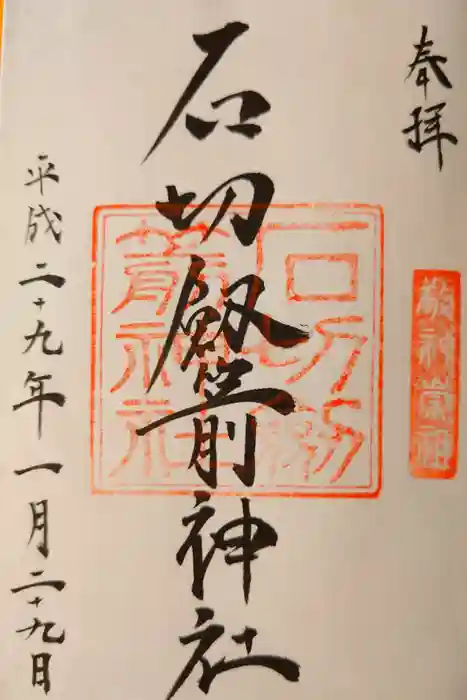 奉拝
敬神崇祖
石切劔箭神社
石切劔
箭神社
平成二十九年一月二十九日